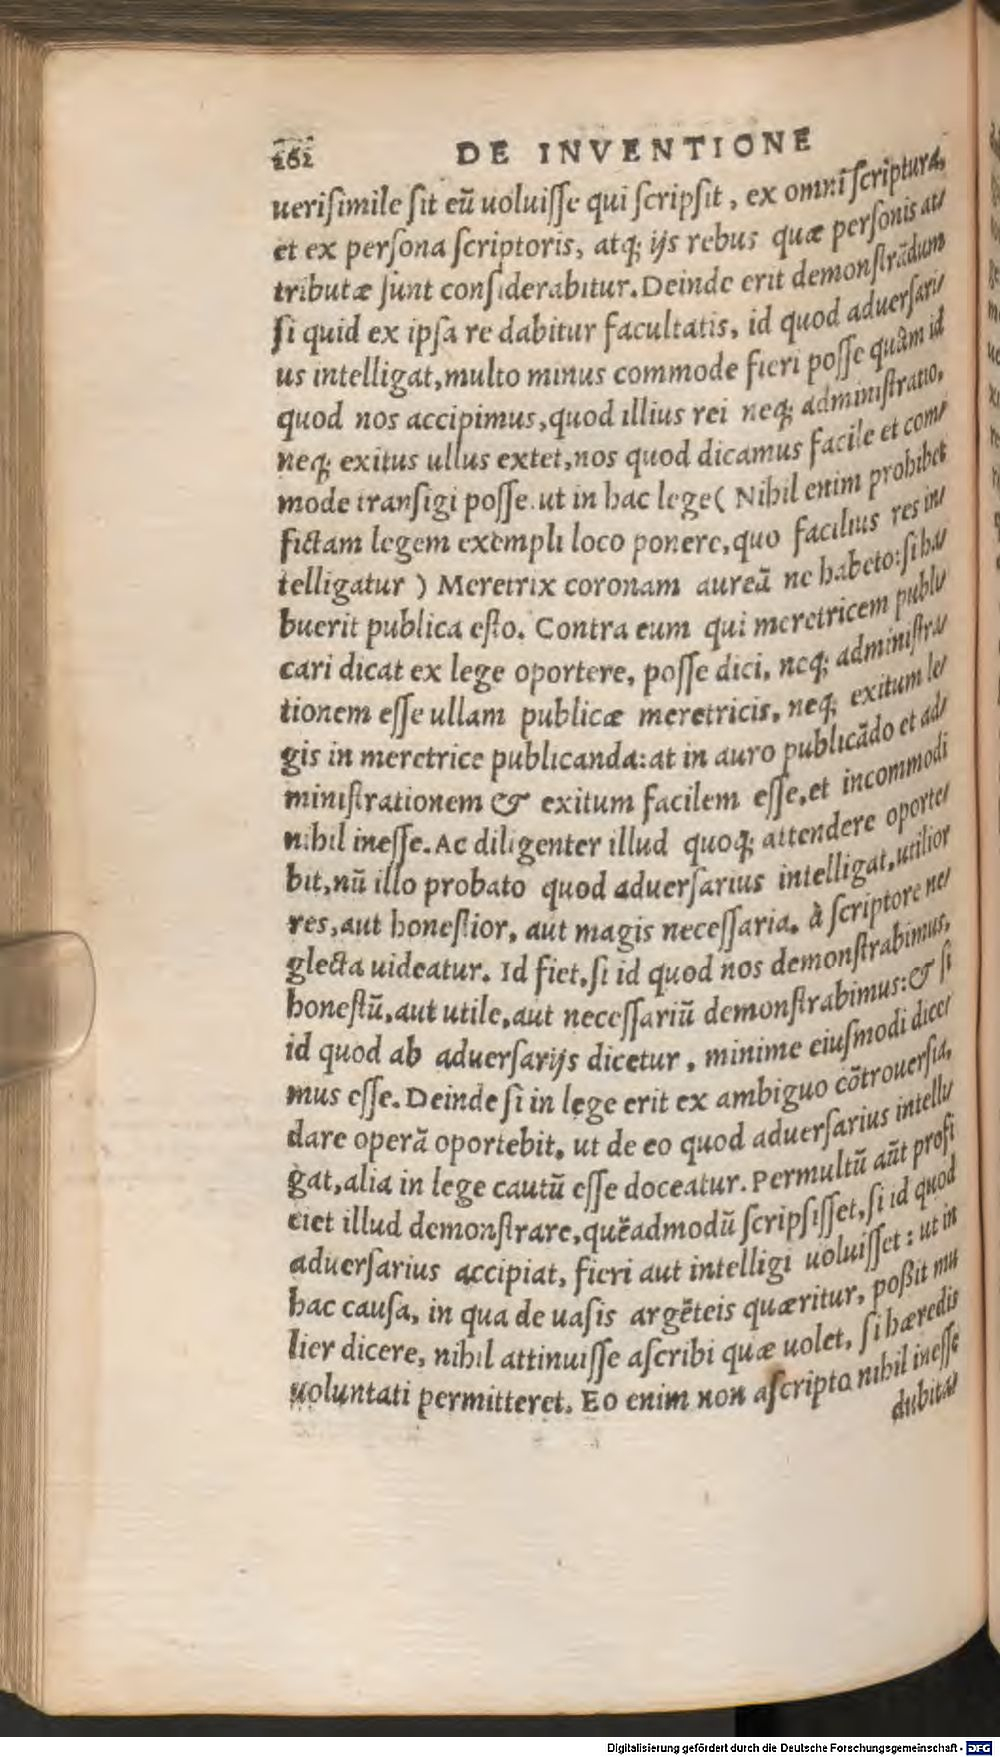 262 DE INVENTIONE
uerisimile sit eũ uoluisse qui scripsit, ex omni scriptura,
et ex persona scriptoris, atq; ijs rebus quæ personis at/
tributæ sunt considerabitur. Deinde erit demonstrãdum
si quid ex ipsa re dabitur facultatis, id quod aduersari/
us intelligat, multo minus commode fieri posse quàm id
quod nos accipimus, quod illius rei neq; administratio,
neq; exitus ullus extet, nos quod dicamus facile et com/
mode transigi posse. ut in hac lege ( Nihil enim prohibet
fictam legem exempli loco ponere, quo facilius res in/
telligatur ) Meretrix coronam aureã ne habeto: si ha/
buerit publica esto. Contra eum qui meretricem publi/
cari dicat ex lege oportere, posse dici, neq; administra/
tionem esse ullam publicæ meretricis, neq; exitum le/
gis in meretrice publicanda: at in auro publicãdo et ad/
ministrationem & exitum facilem esse, et incommodi
nihil inesse. Ac diligenter illud quoq; attendere oporte/
bit, nũ illo probato quod aduersarius intelligat, utilior
res, aut honestior, aut magis necessaria, à scriptore ne/
glecta uideatur. Id fiet, si id quod nos demonstrabimus,
honestũ, aut utile, aut necessariũ demonstrabimus: & si
id quod ab aduersarijs dicetur, minime eiusmodi dice/
mus esse. Deinde si in lege erit ex ambiguo cõtrouersia,
dare operã oportebit, ut de eo quod aduersarius intelli/
gat, alia in lege cautũ esse doceatur. Permultũ aũt profi
ciet illud demonstrare, quẽadmodũ scripsisset, si id quod
aduersarius accipiat, fieri aut intelligi uoluisset: ut in
hac causa, in qua de uasis argẽteis quæritur, poßit mu
lier dicere, nihil attinuisse ascribi quæ uolet, si hæredis
uoluntati permitteret. Eo enim non ascripto nihil inesse
dubita/
Digitalisierung gefördert durch die Deutsche Forschungsgemeinschaft - DFG